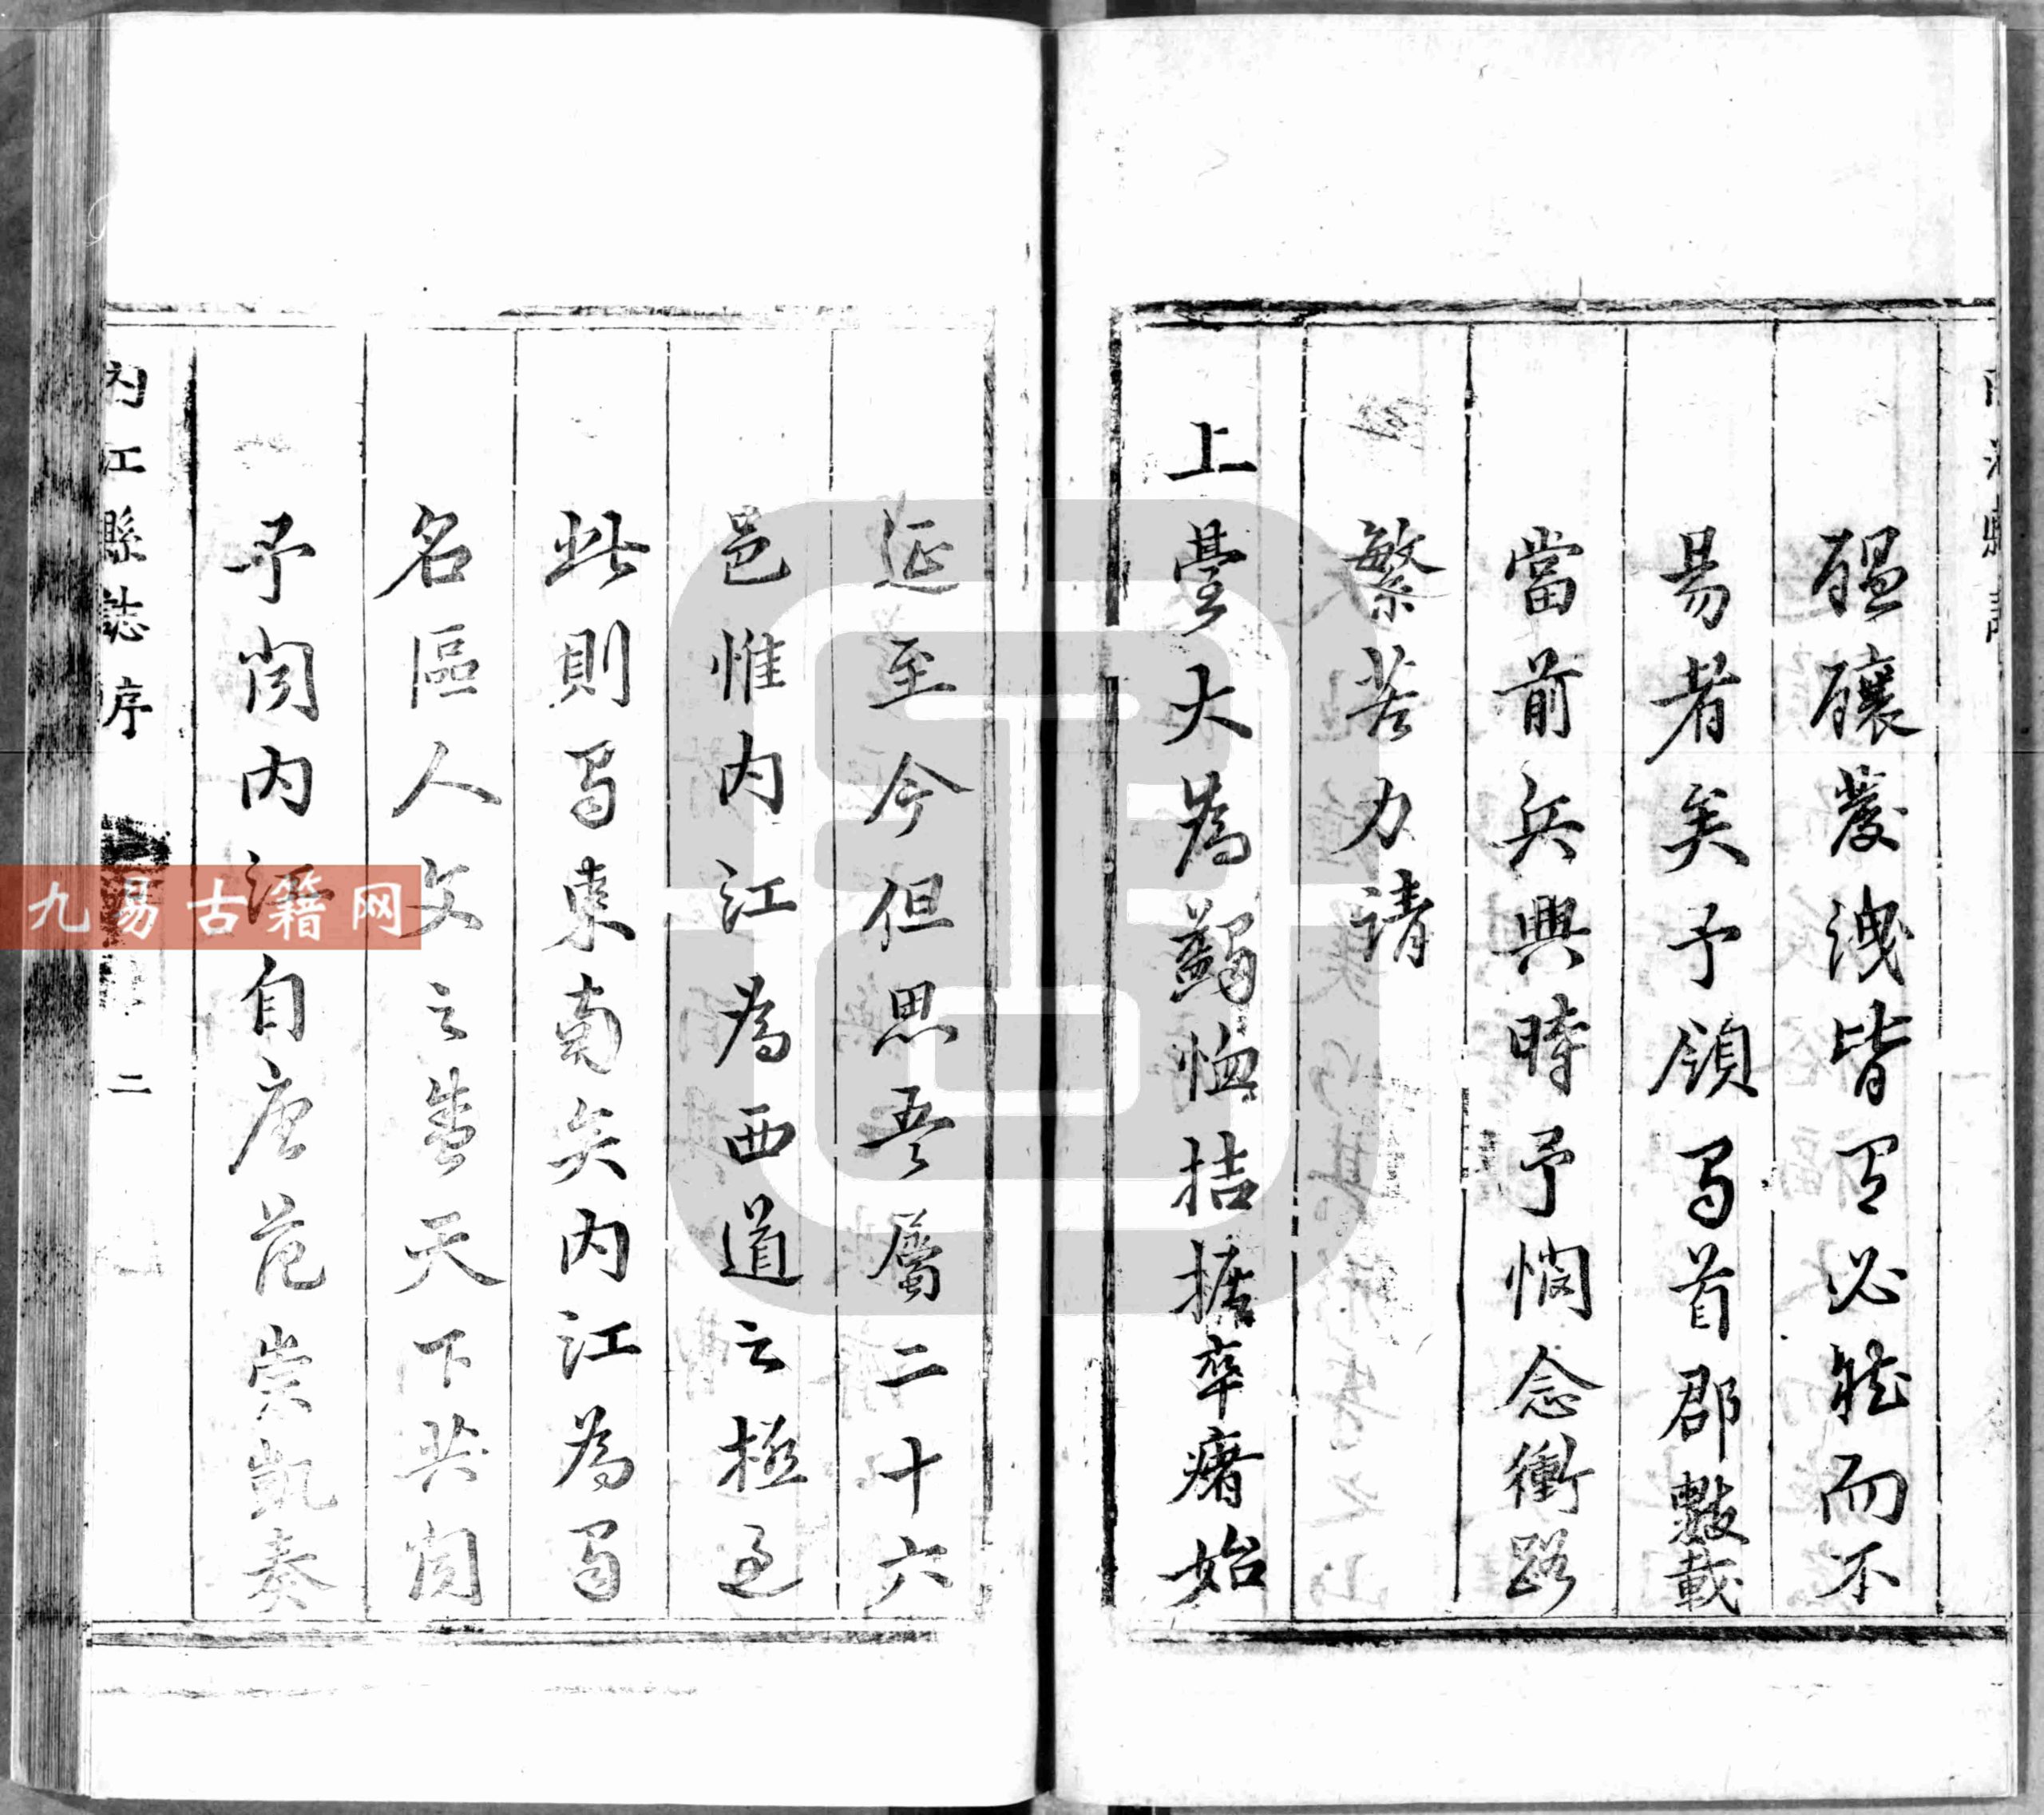 醞釀發洩皆有必然而不
易者矣予領蜀首郡數載
當前兵興時予憫念衝路
繁苦力請
上臺大為蠲恤拮据卒瘏始
延至今但思吾屬二十六
邑惟内江為西道之極過
此則蜀東南矣内江為蜀
名區人文之盛天下共聞
予閱内江自唐范崇凱奏
内江縣誌 序
二
九易古籍网